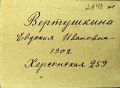 2842
Вертушкина
Евдокия Ивановна
1902
Херсонская 259